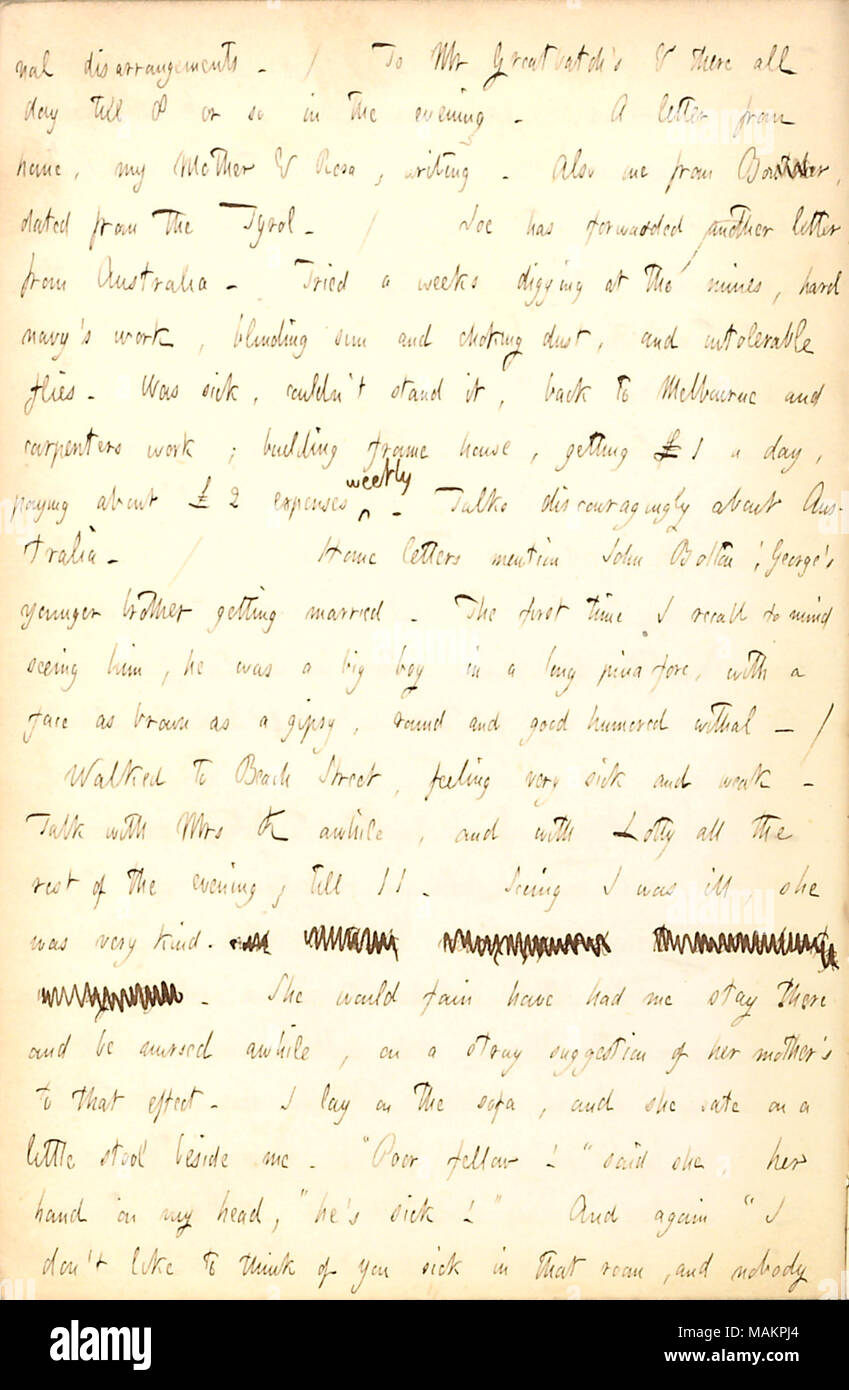 nal disarrangements. / To Mr Greatbatch's & there all
day till 8 or so in the evening. A letter from
home, my Mother & Rosa, writing. Also one from
dated from the Tyrol. / Joe has forwarded another letter
from Australia. Tried a weeks digging at the mines, hard
navy's work, blinding sun and choking dust, and intolerable
flies. Was sick, couldn't stand it, back to Melbourne and
carpenters work; building frame house, getting £1 a day,
paying about £2 expenses weekly. Talks discouragingly about Aus-
tralia. / Home letters mention John Bolton; George's
younger brother getting married. The first time I recall to mind
seeing him, he was a big boy in a long pinafore, with a
face as brown as a gipsy, round and good humored withal — /
Walked to Beach Street, feeling very sick and weak.
Talk with Mrs K awhile, and with Lotty all the
rest of the evening, till 11. Seeing I was ill, she
was very kind.
She would fain have had me stay there
and be nursed awhile, on a stray suggestion of her mother's
to that effect. I lay on the sofa, and she sate on a
little stool beside me. "Poor fellow!" said she, her
hand on my head, "he's sick!" And again "I
don't like to think of you sick in that room, and nobody
alamy
Image ID: MAKPJ4
www.alamy.com